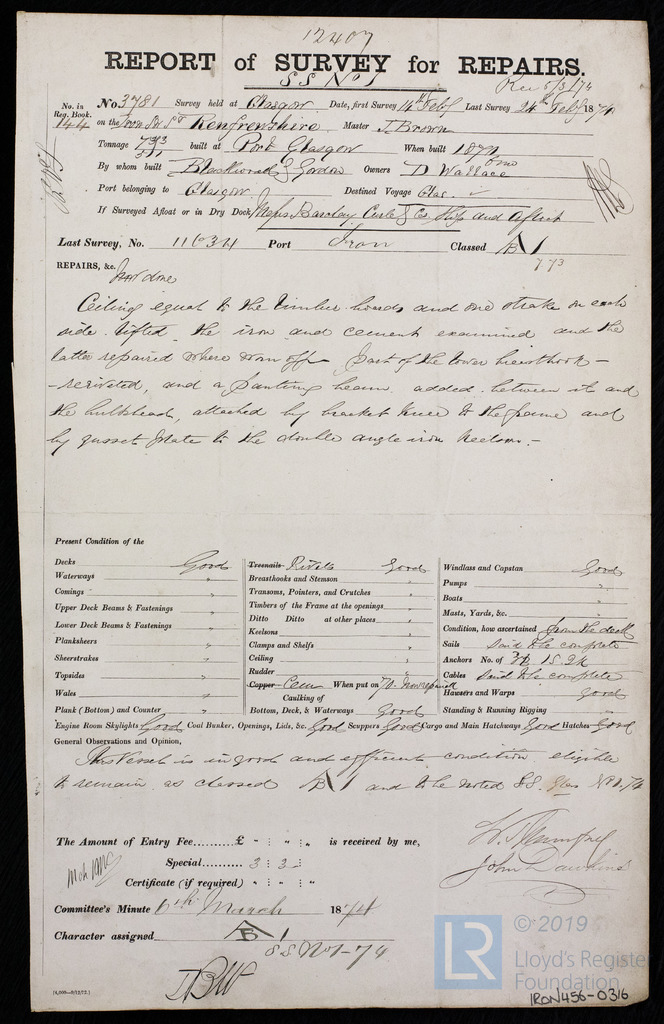 12407
REPORT of SURVEY for REPAIRS.
S.S. No 1
Rec 5/3/74
No. in Reg. Book. 144
No 3781 Survey held at Glasgow Date, first Survey 14th Feby Last Survey 24th Feby 1874
on the Iron Renfrewshire Master J. Brown
Tonnage 733 built at Port Glasgow When built 187
By whom built Blackwood & Gordon Owners D Wallace
Port belonging to Glasgow Destined Voyage Glas.
If Surveyed Afloat or in Dry Dock Messrs Barclay Curle & Co. Slip and Afloat
Last Survey, No. 11634 Port Iron Classed A 1
7 73
REPAIRS, &c. Now done
Ceiling equal to the timber boards and one strake on each
side lifted the iron and cement examined and the
latter repaired where worn off part of the lower breasthook –
– rerivited, and a panting beam added between it and
the bulkhead, attached by bracket knee to the frame and
by gusset plate to the double angle iron keelson. –
Present Condition of the
Decks Good
Waterways "
Comings "
Upper Deck Beams & Fastenings "
Lower Deck Beams & Fastenings "
Planksheers "
Sheerstrakes "
Topsides "
Wales "
Plank (Bottom) and Counter "
Treenails Rivets Good
Breasthooks and Stemson "
Transoms, Pointers, and Crutches "
Timbers of the Frame at the openings "
Ditto Ditto at other places "
Keelsons "
Clamps and Shelfs "
Ceiling "
Rudder "
Copper Cem When put on 70. Now repaired
Caulking of
Bottom, Deck, & Waterways Good
Windlass and Capstan Good
Pumps "
Boats "
Masts, Yards, &c. "
Condition, how ascertained from the deck
Sails said to be complete
Anchors No. of 3B, 1S. 2K
Cables said to be complete
Hawsers and Warps good
Standing & Running Rigging "
Engine Room Skylights Good Coal Bunker, Openings, Lids, &c. Good Scuppers Good Cargo and Main Hatchways Good Hatches Good
General Observations and Opinion,
This Vessel is in good and efficient condition eligible
to remain as classed A 1 and to be noted S.S. Glas No 1. 74
The Amount of Entry Fee.......... £ " : " : " is received by me,
Special......... 3 : 3 : "
Certificate (if required) " : " : "
John Dawkins
Committee's Minute 6th March 1874
Character assigned A 1
S S No 1 - 74
[4,000—9/12/72.]
© 2019
LR
Lloyd's Register
Foundation
IRON456-0316